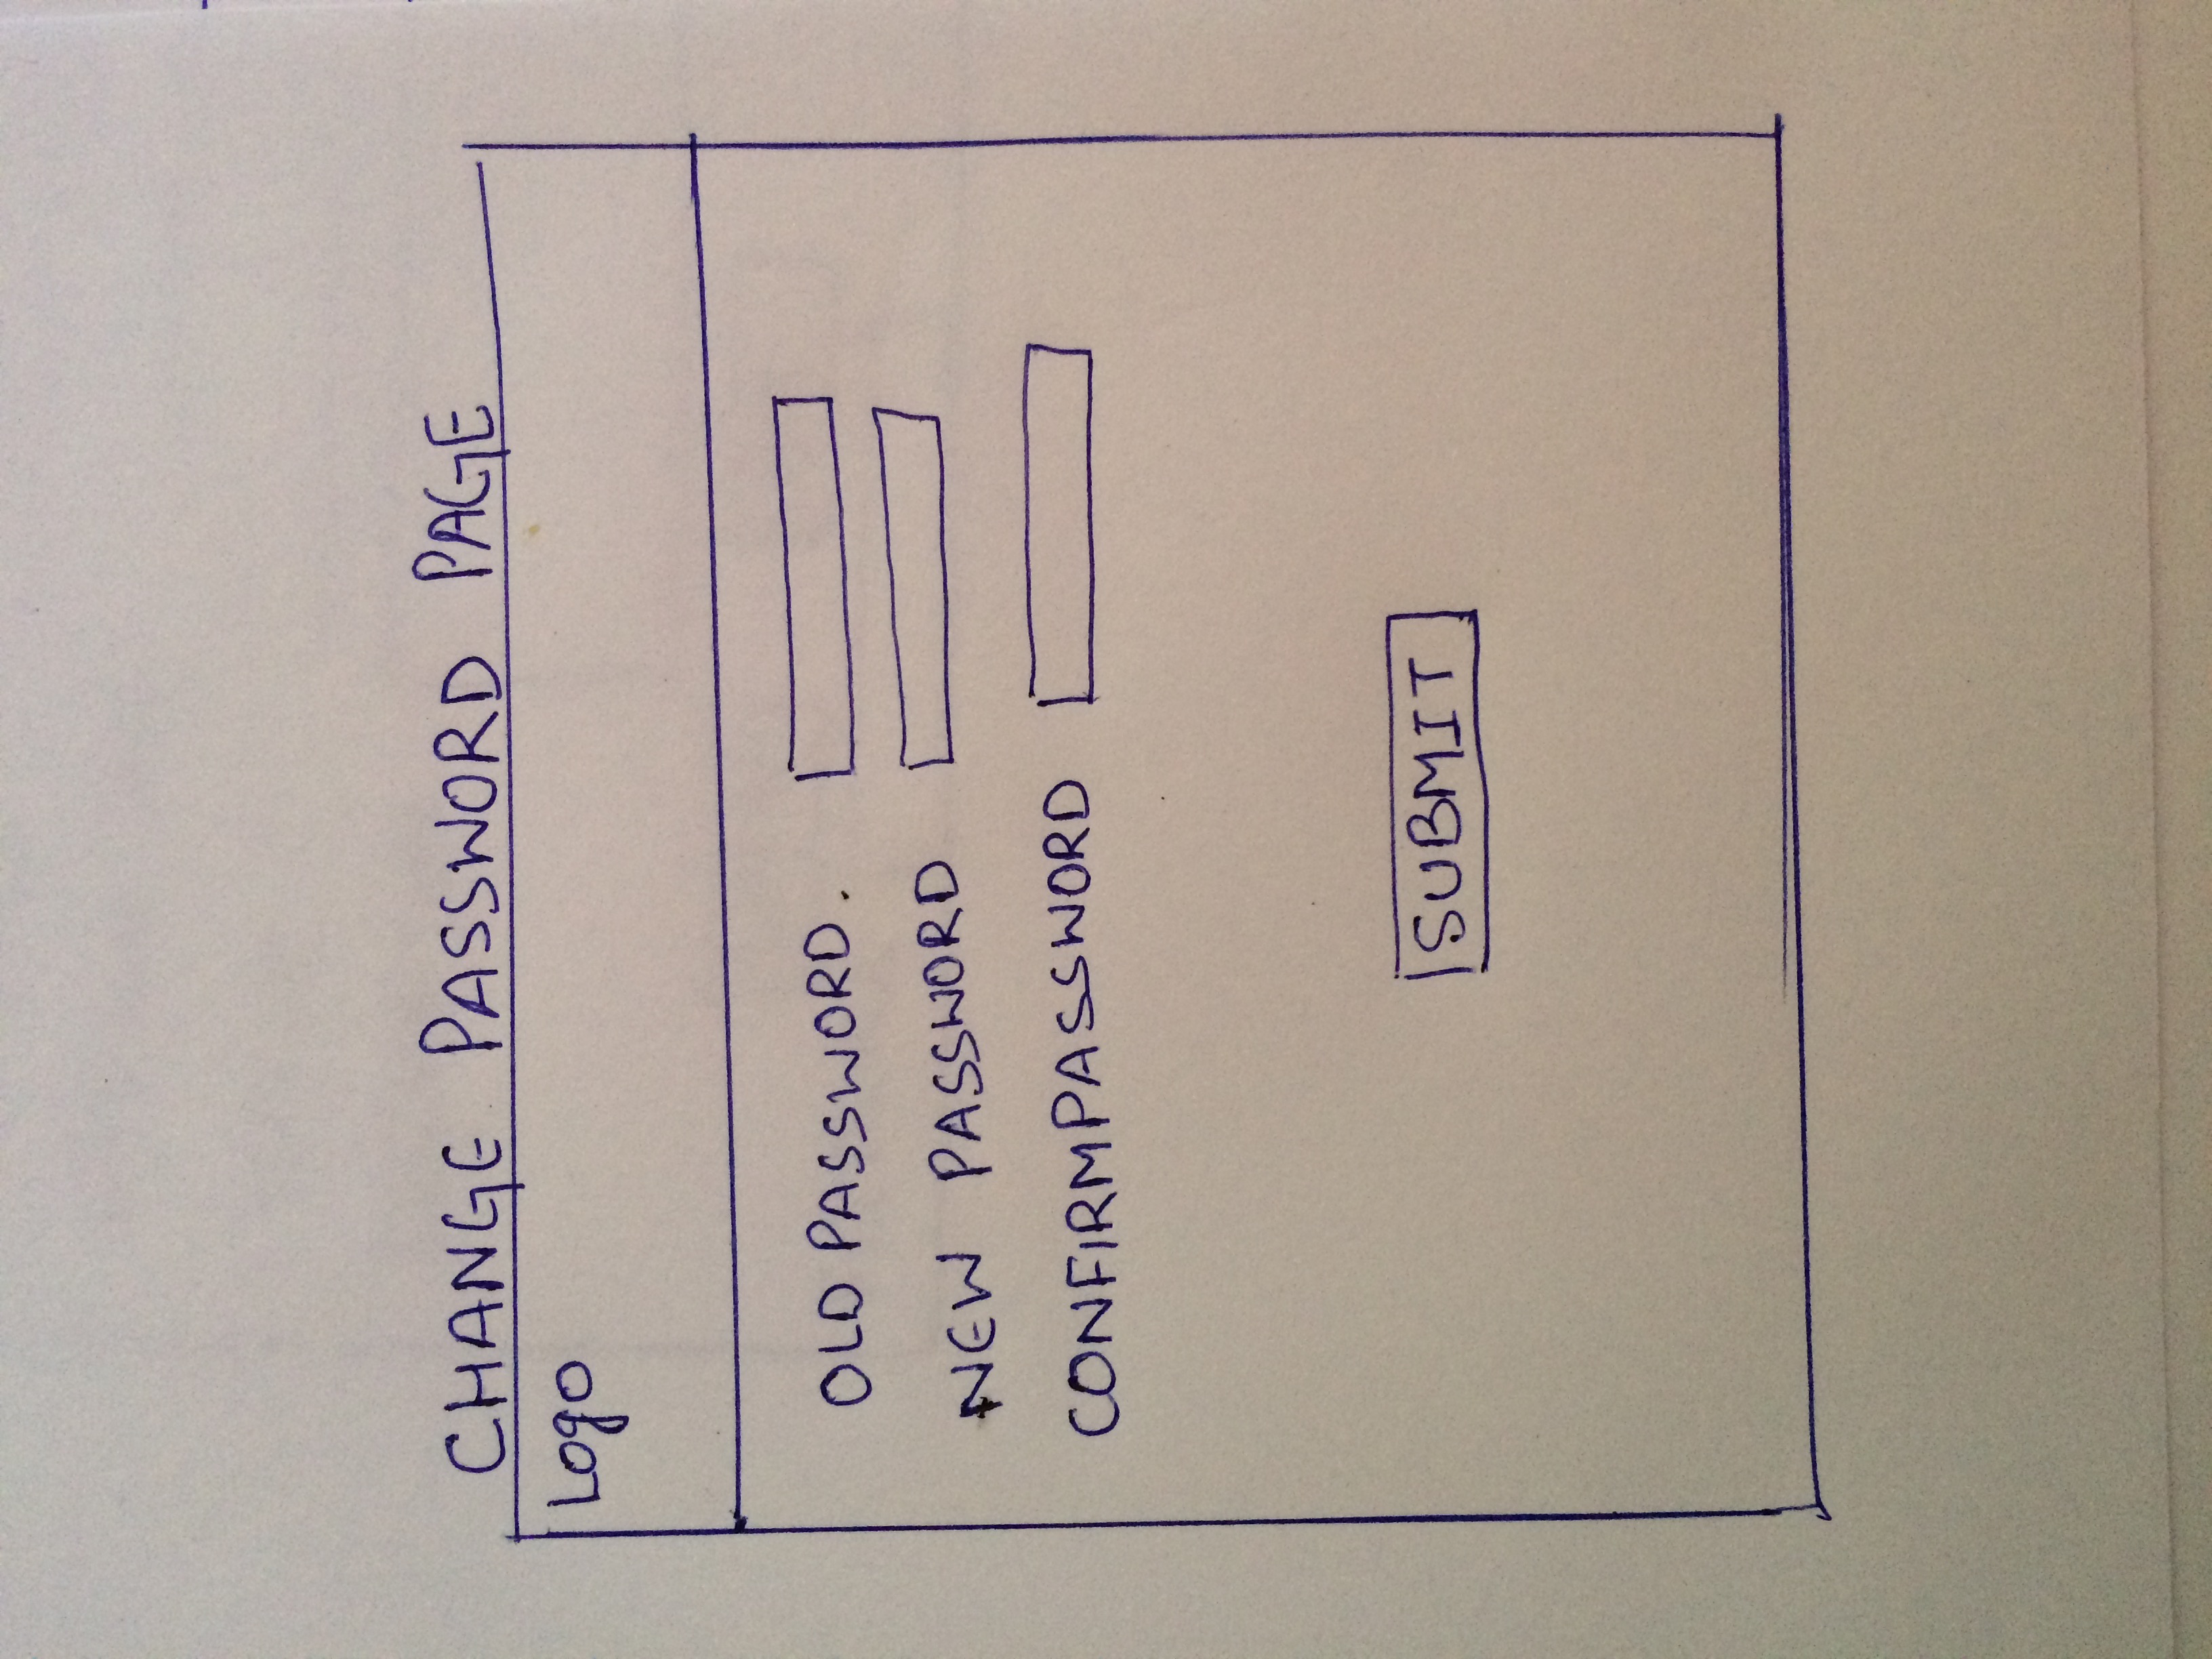 CHANGE PASSWORD PAGE
Logo
OLD PASSWORD.
NEW PASSWORD
CONFIRMPASSWORD
SUBMIT